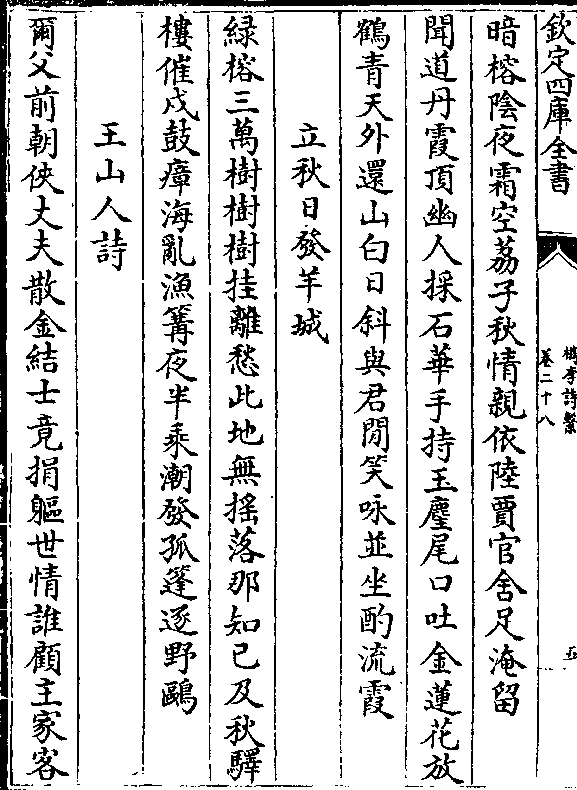 欽定四庫全書
檇李詩繫
卷二十八
五
暗榕陰夜霜空荔子秋情親依陸賈官舍足淹留
聞道丹霞頂幽人採石華手持玉麈尾口吐金蓮花放
鶴青天外還山白日斜與君閒笑咏並坐酌流霞
立秋日發羊城
緑榕三萬樹樹樹挂離愁此地無摇落那知已及秋驛
樓催戍鼓瘴海亂漁篝夜半乘潮發孤篷逐野鷗
王山人詩
爾父前朝俠丈夫散金結士竟捐軀世情誰顧主家客